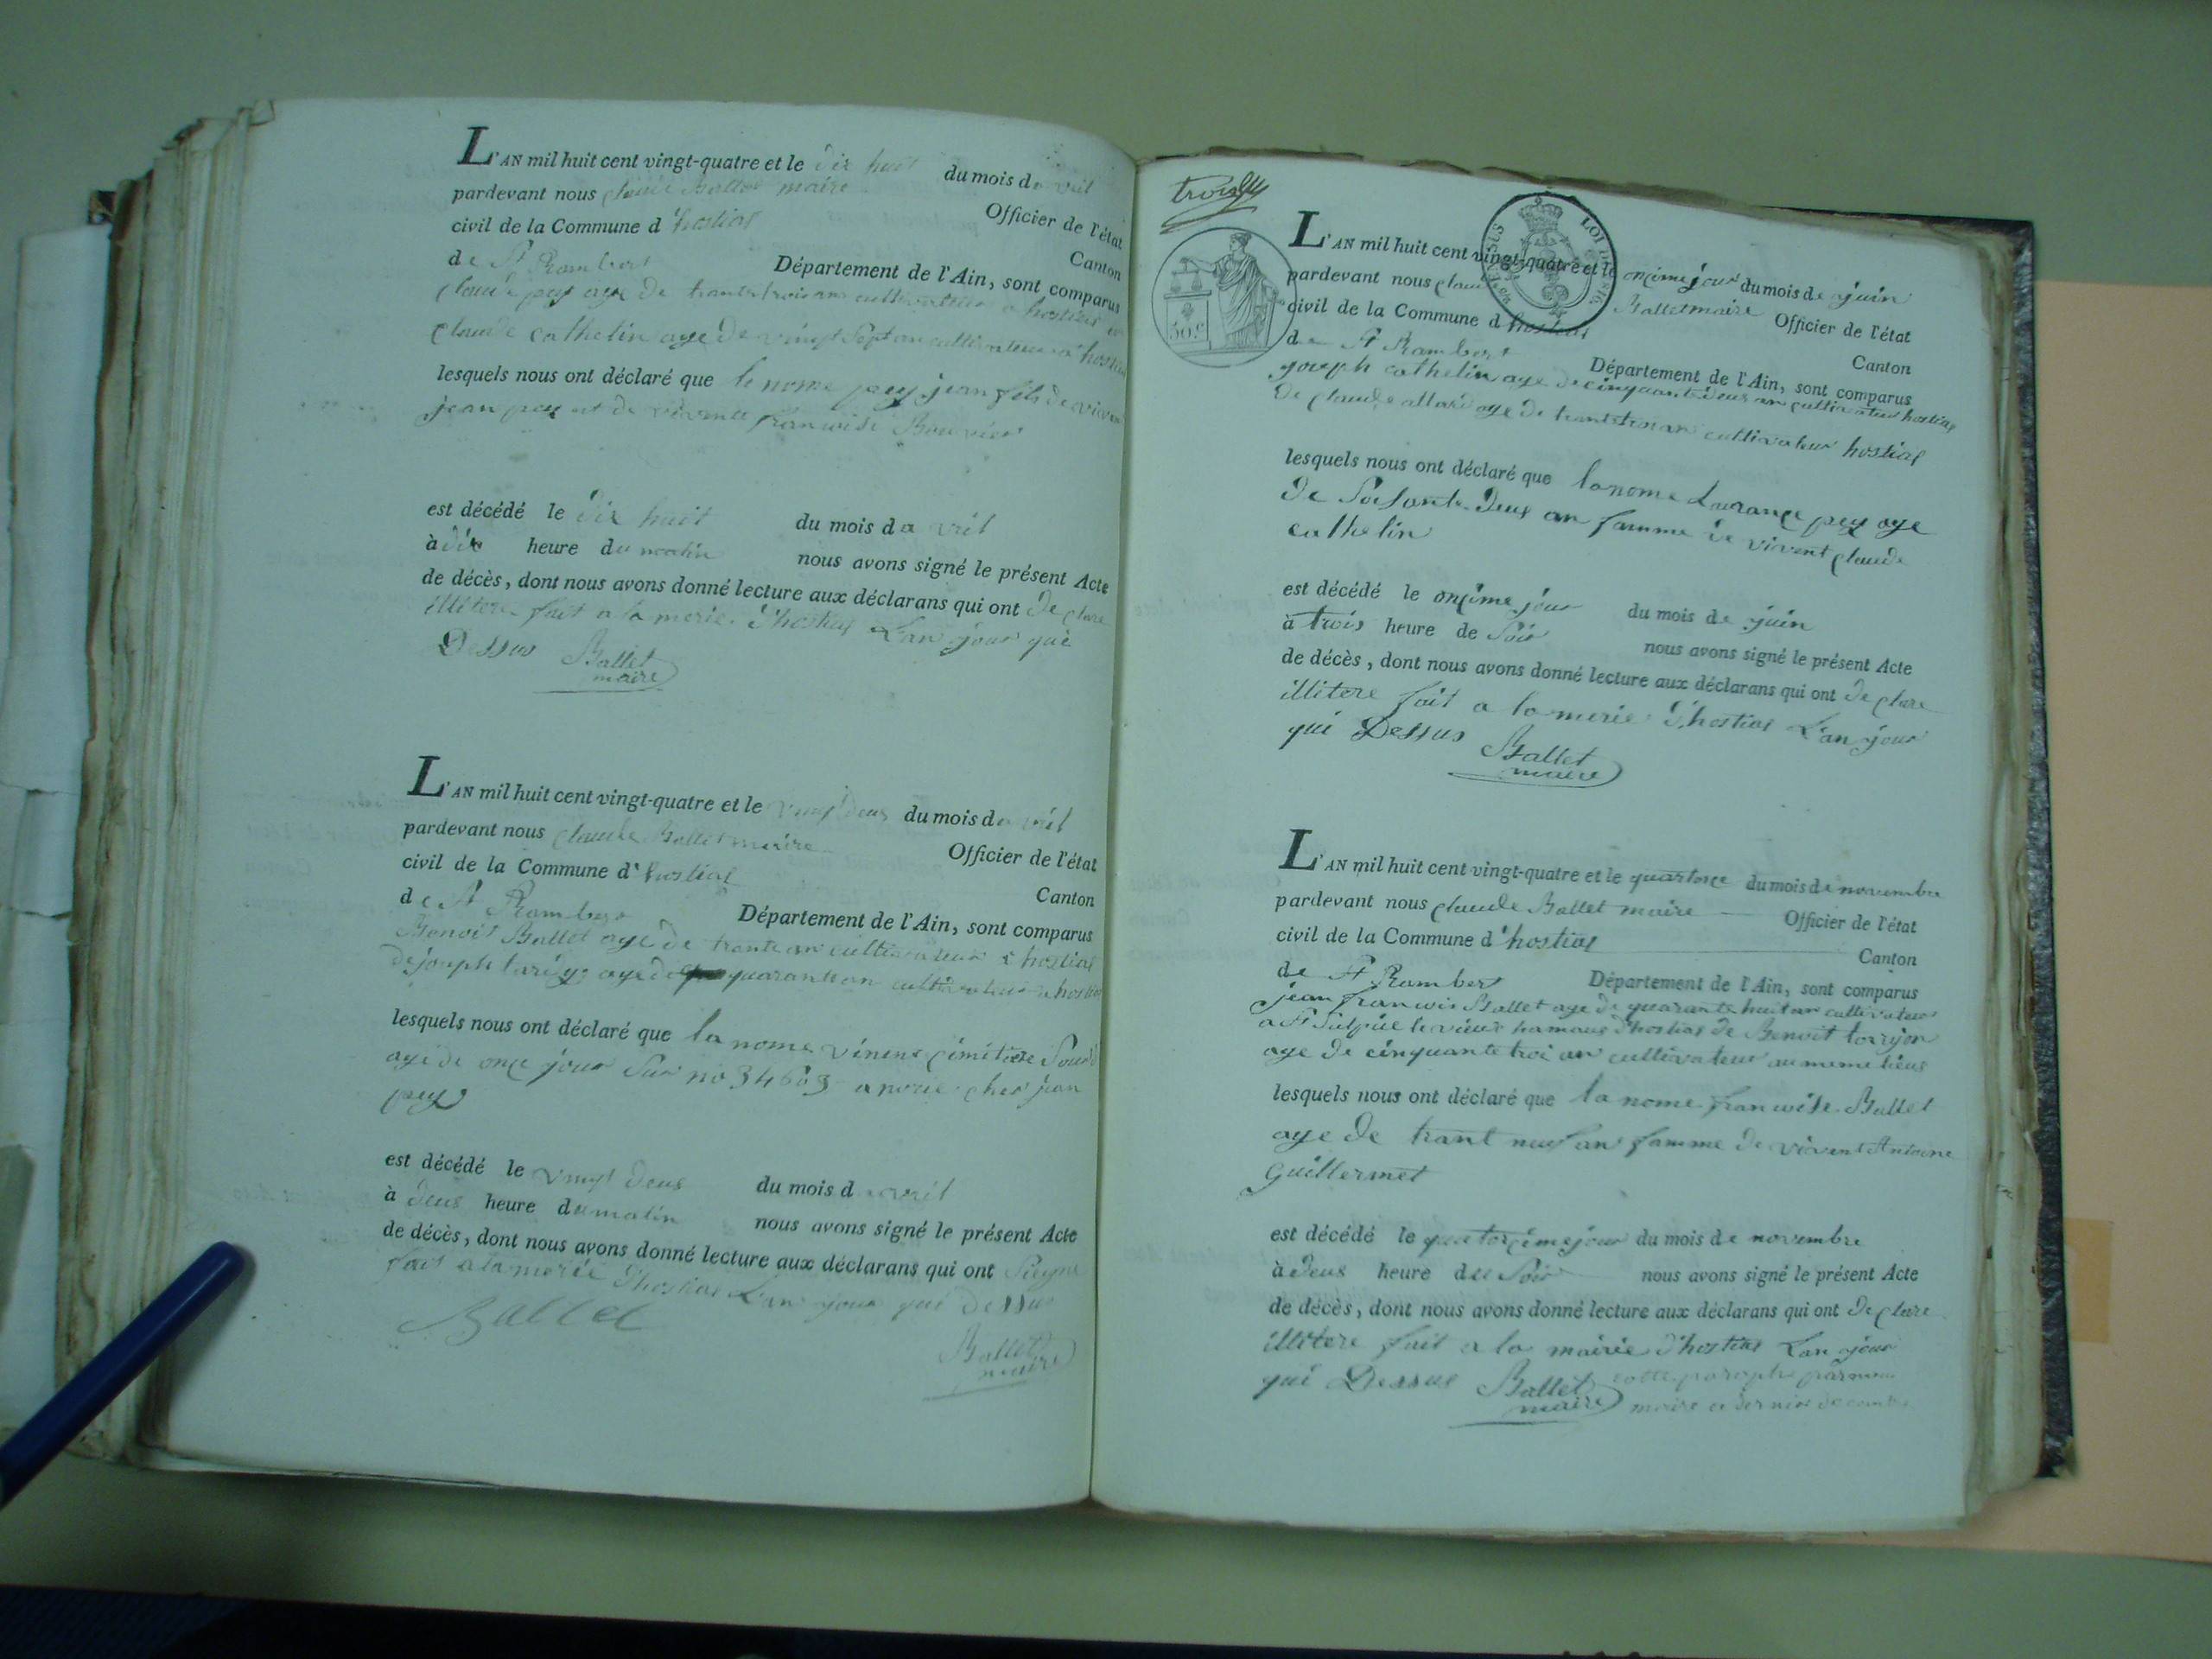 L'AN mil huit cent vingt-quatre et le dix huit du mois d avril
pardevant nous claude Ballet maire Officier de l'état
civil de la Commune d hostias Canton
de St Rambert Département de l'Ain, sont comparus
claude pey aye de trante trois an cultivateur a hostias et
claude cathelin aye de vingt sept an cultivateur a hostias
lesquels nous ont déclaré que le nome pey jean fils de vivent
jean pey et de vivente franwise Bouvier
est décédé le dix huit du mois d avril
à dix heure du matin nous avons signé le présent Acte
de décès, dont nous avons donné lecture aux déclarans qui ont declare
illitere fait a la merie d'hostias L'an jour qui
Dessus Ballet
maire
L'AN mil huit cent vingt-quatre et le vingt deus du mois d avril
pardevant nous claude Ballet maire Officier de l'état
civil de la Commune d' hostias Canton
de St Rambert Département de l'Ain, sont comparus
Benoit Ballet aye de trante an cultivateur a hostias
de joseph tardy aye de quarante an cultivateur a hostias
lesquels nous ont déclaré que la nome
aye de onçe jour Sur no 34603 cher jean
pey
est décédé le vingt deus du mois d avril
à deus heure du matin nous avons signé le présent Acte
de décès, dont nous avons donné lecture aux déclarans qui ont Signe
fait a la merie d'hostias L'an jour qui dessus
Ballet
Ballet
maire
trois
50 c
LOI
L'AN mil huit cent vingt-quatre et le onçime jour du mois de juin
pardevant nous claude Ballet maire Officier de l'état
civil de la Commune d hostias Canton
de St Rambert Département de l'Ain, sont comparus
joseph cathelin aye de cinquante deus an cultivateur hostias
de claude allard aye de trante trois an cultivateur hostias
lesquels nous ont déclaré que la nome Laurançe pey aye
de Soisante Deus an famme de vivent claude
cathelin
est décédé le onçime jour du mois de juin
à trois heure de Soir nous avons signé le présent Acte
de décès, dont nous avons donné lecture aux déclarans qui ont declare
illitere fait a la merie d'hostias L'an jour
qui Dessus Ballet
maire
L'AN mil huit cent vingt-quatre et le quatorçe du mois de novembre
pardevant nous claude Ballet maire Officier de l'état
civil de la Commune d'hostias Canton
de St Rambert Département de l'Ain, sont comparus
jean franwis Ballet aye de quarante huit an cultivateur
a St Sulpice le vieus hamaus d'hostias de Benoit torrijon
aye de cinquante troi an cultivateur au meme lieus
lesquels nous ont déclaré que la nome franwise Ballet
aye de trant neuf an famme de vivent Antoine
Guillermet
est décédé le quatorçime jour du mois de novembre
à deus heure du Soir nous avons signé le présent Acte
de décès, dont nous avons donné lecture aux déclarans qui ont declare
illitere fait a la mairie d'hostias L'an jour
qui Dessus Ballet
maire